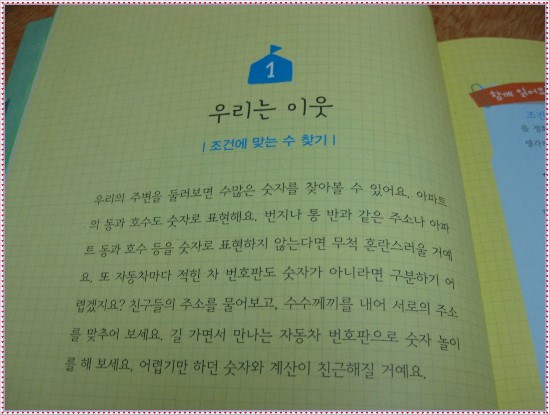 1
우리는 이웃
| 조건에 맞는 수 찾기 |
우리의 주변을 둘러보면 수많은 숫자를 찾아볼 수 있어요. 아파트
의 동과 호수도 숫자로 표현해요. 번지나 통 반과 같은 주소나 아파
트 동과 호수 등을 숫자로 표현하지 않는다면 무척 혼란스러울 거예
요. 또 자동차마다 적힌 차 번호판도 숫자가 아니라면 구분하기 어
렵겠지요? 친구들의 주소를 물어보고, 수수께끼를 내어 서로의 주소
를 맞추어 보세요. 길 가면서 만나는 자동차 번호판으로 숫자 놀이
를 해 보세요. 어렵기만 하던 숫자와 계산이 친근해질 거예요.
함께 읽어요
조건